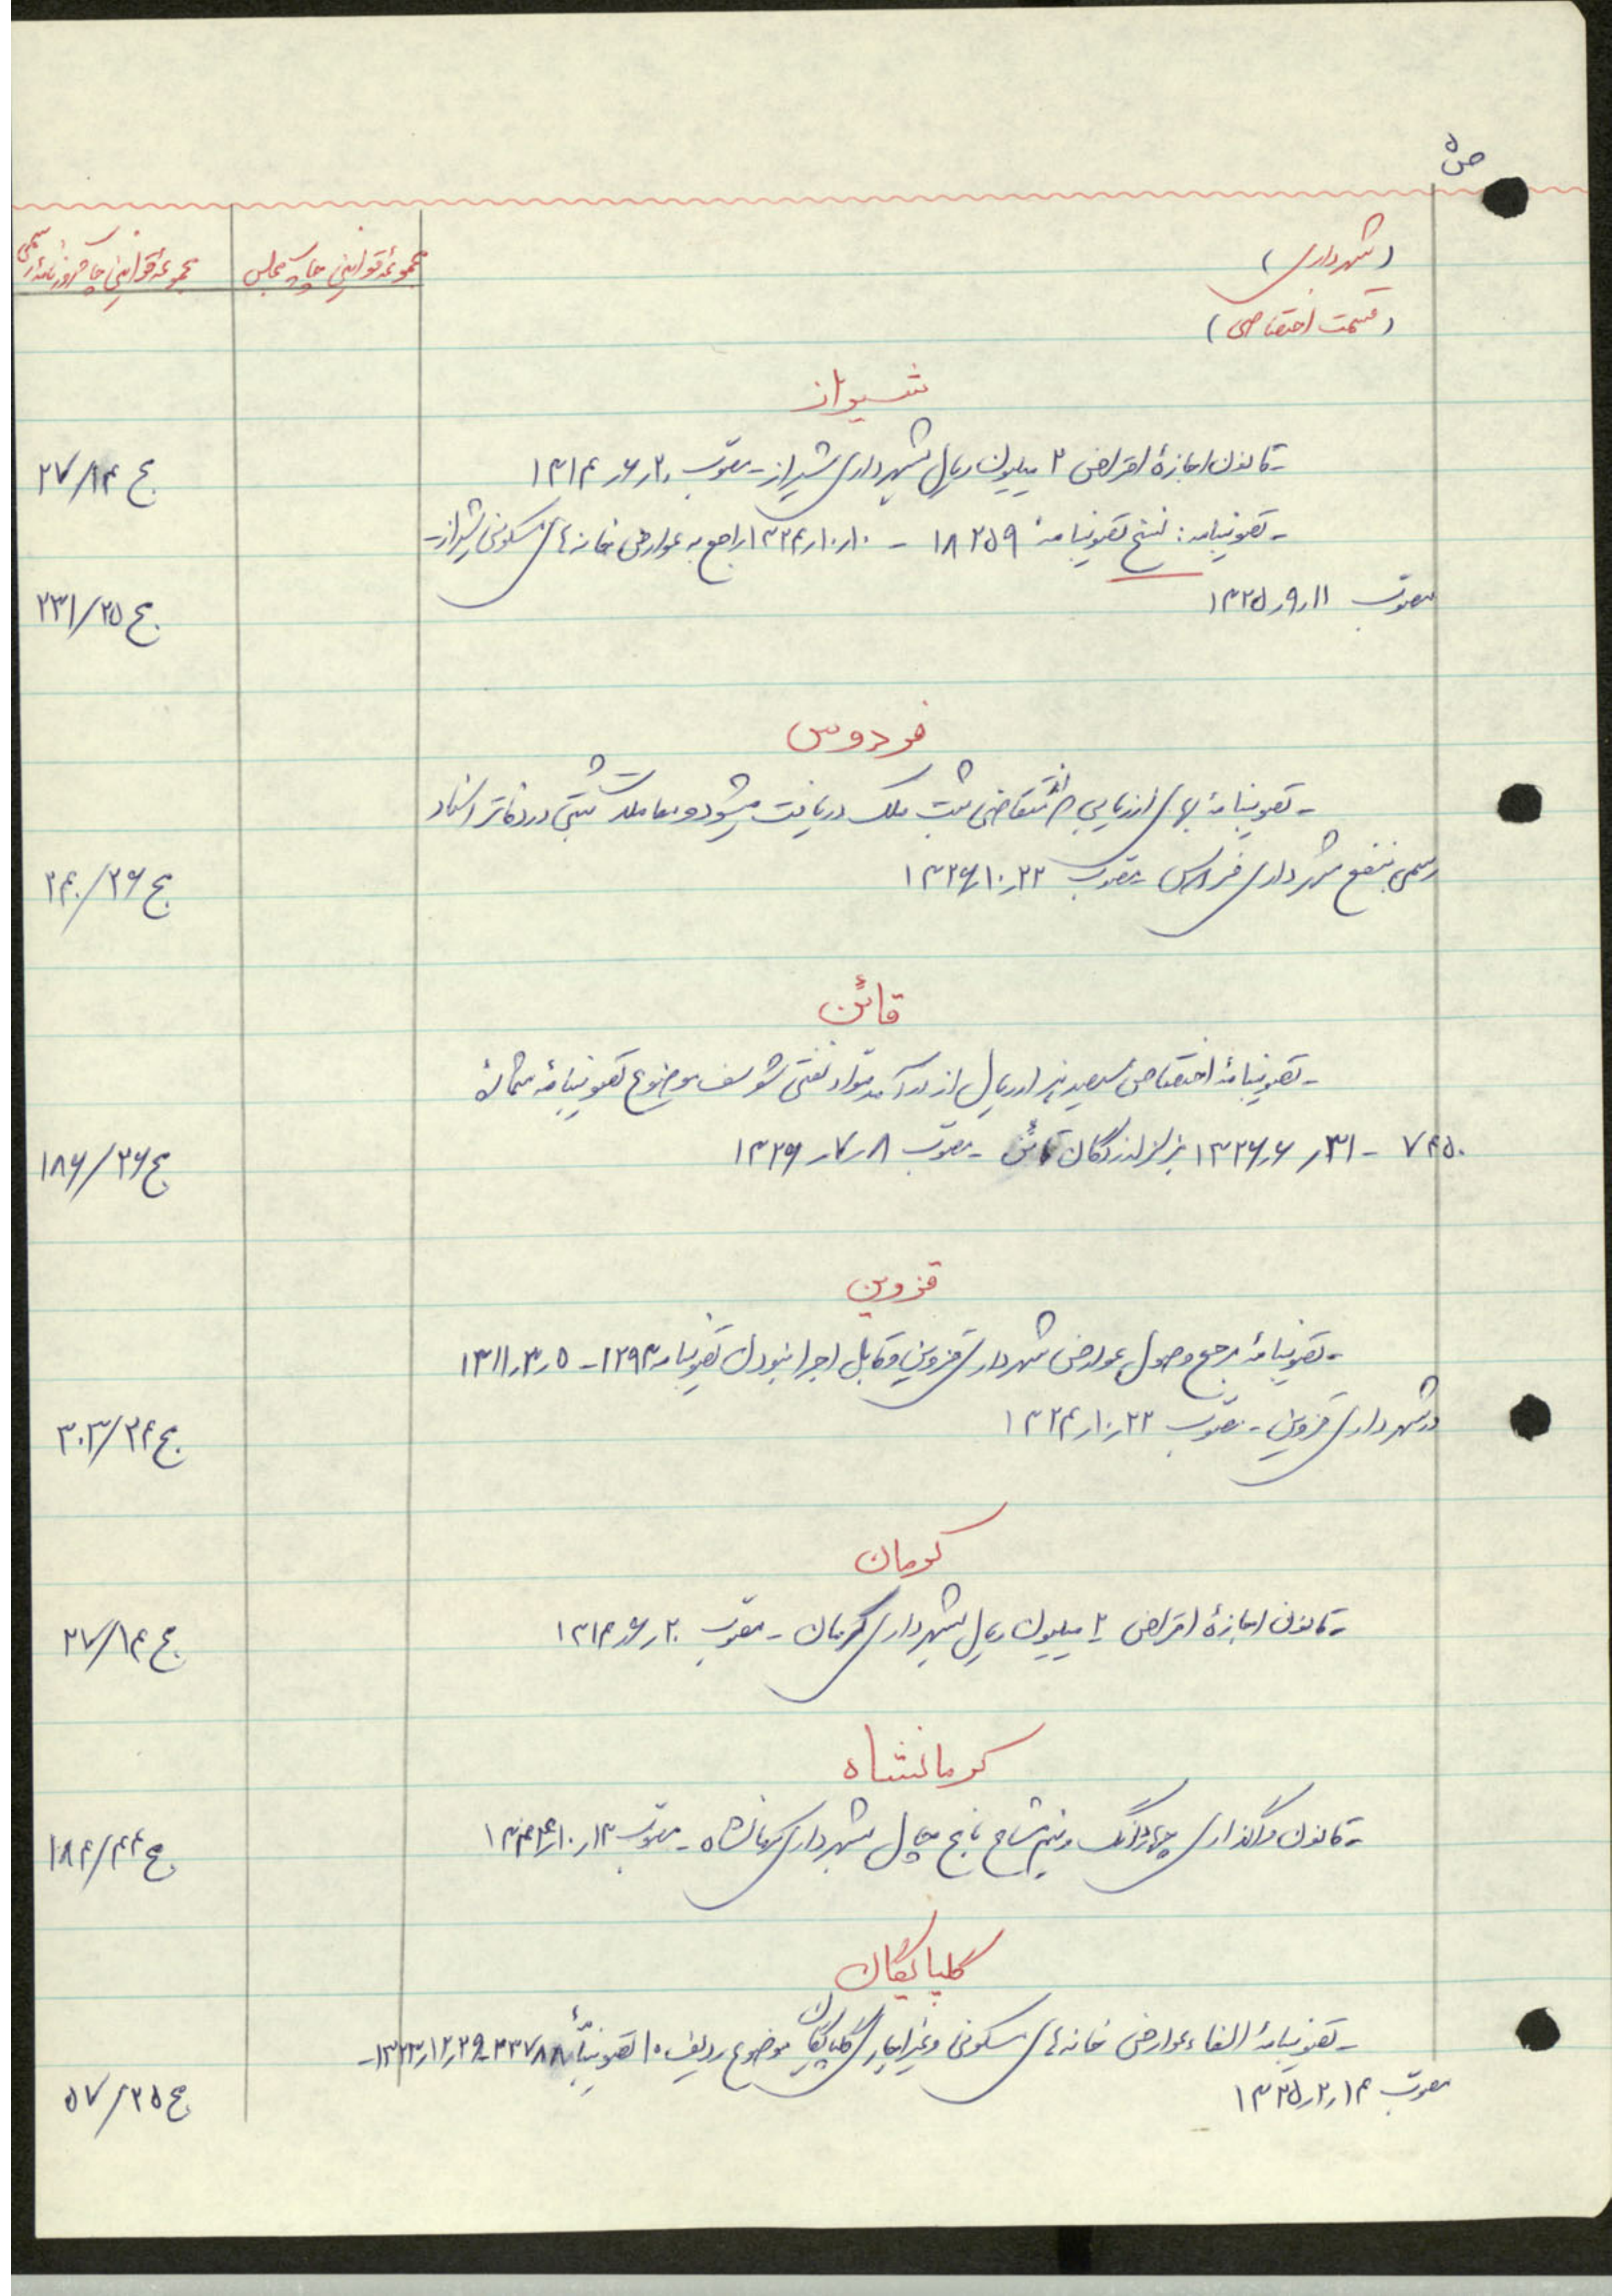 ص ۵
(شهرداری)
(قسمت اختصاصی)
مجموعه قوانین چاپ مجلس
مجموعه قوانین چاپ روزنامه رسمی
شیراز
- قانون اجازهٔ اقتراض ۲ میلیون ریال بشهرداری شیراز - مصوب ۲۰ر۶ر۱۳۱۴
ج ۲۷/۱۴
- تصویبنامه : نسخ تصویبنامهٔ ۱۸۲۵۹ - ۱۰ر۱۰ر۱۳۲۴ راجع به عوارض خانه‌های مسکونی شیراز -
مصوب ۱۱ر۹ر۱۳۲۵
ج ۲۳۱/۲۵
فردوس
- تصویبنامهٔ بهای ارزیابی متقاضی ثبت ملک دریافت میشود و معاملات ثبتی در دفاتر اسناد
رسمی بنفع شهرداری فردوس - مصوب ۲۲ر۱۰ر۱۳۲۶
ج ۲۴۰/۲۶
قائن
- تصویبنامهٔ اختصاص سیصد هزار ریال از درآمد مواد نفتی شوسف موضوع تصویبنامهٔ شمارهٔ
۷۴۵۰ - ۳۱ر۶ر۱۳۲۶ بزلزله‌زدگان قائن - مصوب ۸ر۷ر۱۳۲۶
ج ۱۸۶/۲۶
قزوین
- تصویبنامهٔ مرجع وصول عوارض شهرداری قزوین و قابل اجرا نبودن تصویبنامه ۱۲۹۳ - ۵ر۳ر۱۳۱۱
در شهرداری قزوین - مصوب ۲۲ر۱۰ر۱۳۲۴
ج ۳۰۳/۲۴
کرمان
- قانون اجازهٔ اقتراض ۲ میلیون ریال بشهرداری کرمان - مصوب ۲۰ر۶ر۱۳۱۴
ج ۲۷/۱۴
کرمانشاه
- قانون واگذاری چهاردانگ و نیم مشاع باغ بشهرداری کرمانشاه - مصوب ۱۳ر۱۰ر۱۳۴۴
ج ۱۸۴/۴۴
گلپایگان
- تصویبنامهٔ الغاء عوارض خانه‌های مسکونی و غیر اجاری گلپایگان موضوع ردیف ۱۰ تصویبنامهٔ ۳۳۷۸۸ - ۲۹ر۱۲ر۱۳۲۳ -
مصوب ۱۴ر۲ر۱۳۲۵
ج ۵۷/۲۵